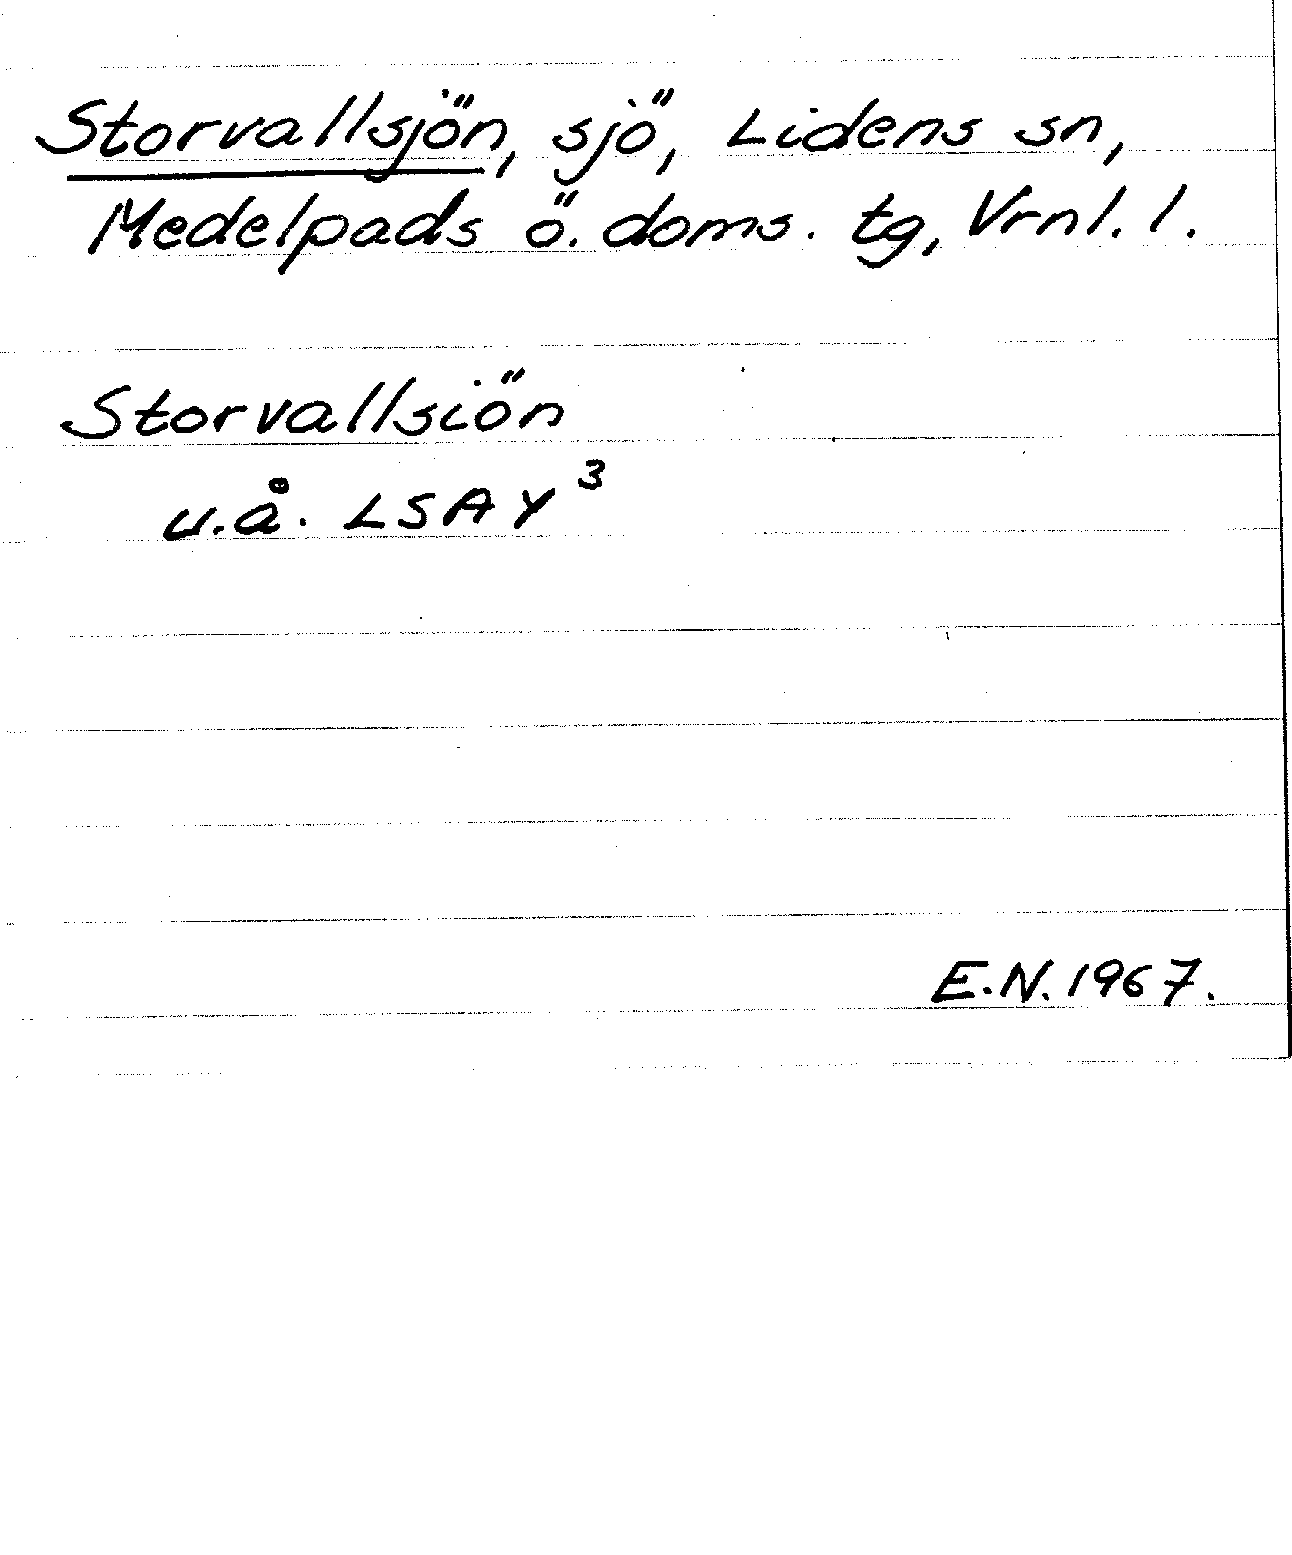 Storvallsjön, sjö, Lidens sn,
Medelpads ö. doms. tg, Vrnl. l.
Storvallsiön
u.å. LSA Y³
E.N. 1967.